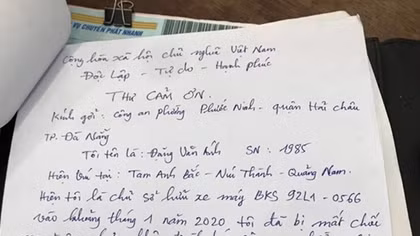 VỤ CHUYỂN PHÁT NHANH
Cộng hòa xã hội chủ nghĩa Việt Nam
Độc Lập - Tự do - Hạnh phúc
THƯ CẢM ƠN.
Kính gởi: công an phường Phước Ninh - quận Hải châu
TP. Đà Nẵng
Tôi tên là: Đặng Văn Anh SN: 1985
Hiện trú tại: Tam Anh Bắc - Núi Thành - Quảng Nam.
Hiện tôi là chủ sở hữu xe máy BKS 92L1 - 0566
vào khoảng tháng 1 năm 2020 tôi đã bị mất chiếc